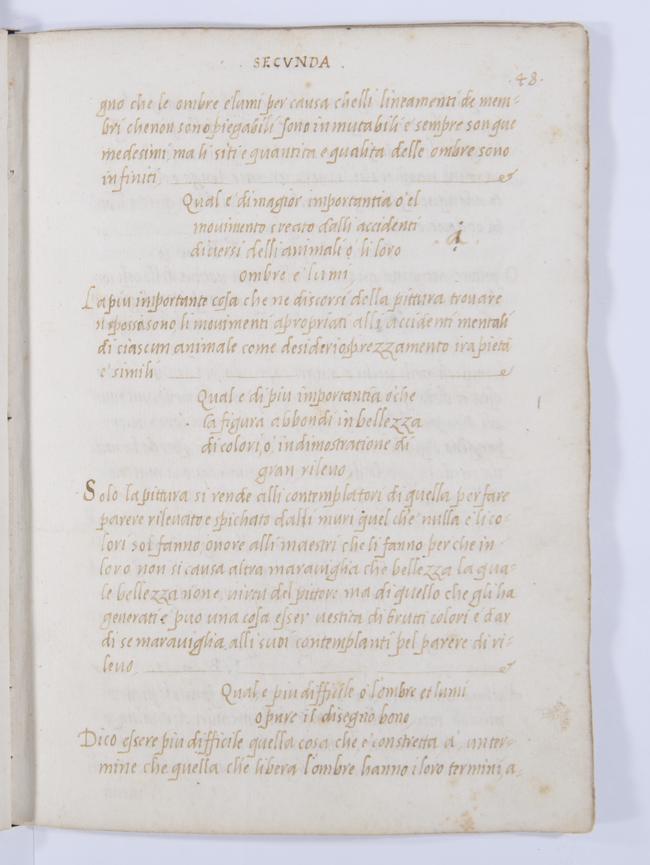 SECVNDA .
48.
gno che le ombre elumi per causa chelli lineamenti de mem-
bri chenon sono piegabili sono inmutabili e sempre son que
medesimi, ma li siti e quantita e qualita delle ombre sono
infiniti
Qual e' di magior importantia o'el
movimento creato dalli accidenti
diversi delli animali o' li loro
ombre e' lumi,
La piu importante cosa che ne discorsi della pittura trovare
si possa sono li movimenti apropriati alli accidenti mentali
di ciascun animale come desiderio sprezzamento ira pietà
e' simili
Qual e di piu importantia o' che
la figura abbondi in bellezza
di colori, o' indimostratione di
gran rilevo
Solo la pitura si rende alli contemplatori di quella per fare
parere rilevato e spichato dalli muri quel che nulla e li co-
lori sol fanno onore alli maestri che li fanno perche in
loro non si causa altra maraviglia che bellezza la qua-
le bellezza non e virtu del pittore ma di quello che gli ha
generati e puo una cosa esser vestita di brutti colori e dar
di se maraviglia alli suoi contemplanti pel parere di ri-
levo
Qual, e piu difficile o' l'ombre et lumi
o pure il disegno bono
Dico essere piu difficile quella cosa che e' constretta a', un ter-
mine che quella che libera l'ombre hanno i loro termini, a-